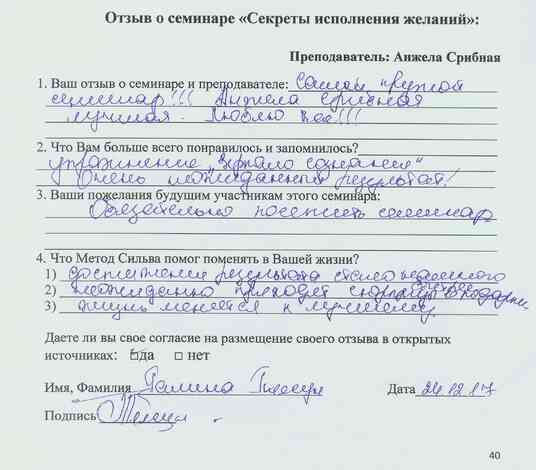 Отзыв о семинаре «Секреты исполнения желаний»:
Преподаватель: Анжела Срибная
1. Ваш отзыв о семинаре и преподавателе: Самый крутой
семинар!!! Анжела Срибная
лучшая. Люблю Вас!!!
2. Что Вам больше всего понравилось и запомнилось?
упражнение "зеркало сознания"
Очень неожиданный результат!
3. Ваши пожелания будущим участникам этого семинара:
Обязательно посетить семинар
4. Что Метод Сильва помог поменять в Вашей жизни?
1) достижение результата стало намного быстрее
2) неожиданно приходят сюрпризы и подарки
3) жизнь меняется к лучшему
Даете ли вы свое согласие на размещение своего отзыва в открытых
источниках: ☑да □ нет
Имя, Фамилия Галина Дата 24 12 17
Подпись
40